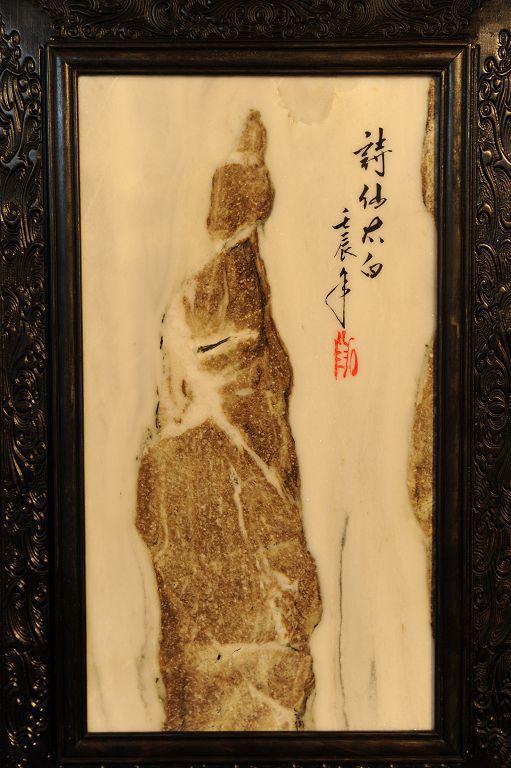 詩仙太白
壬辰年